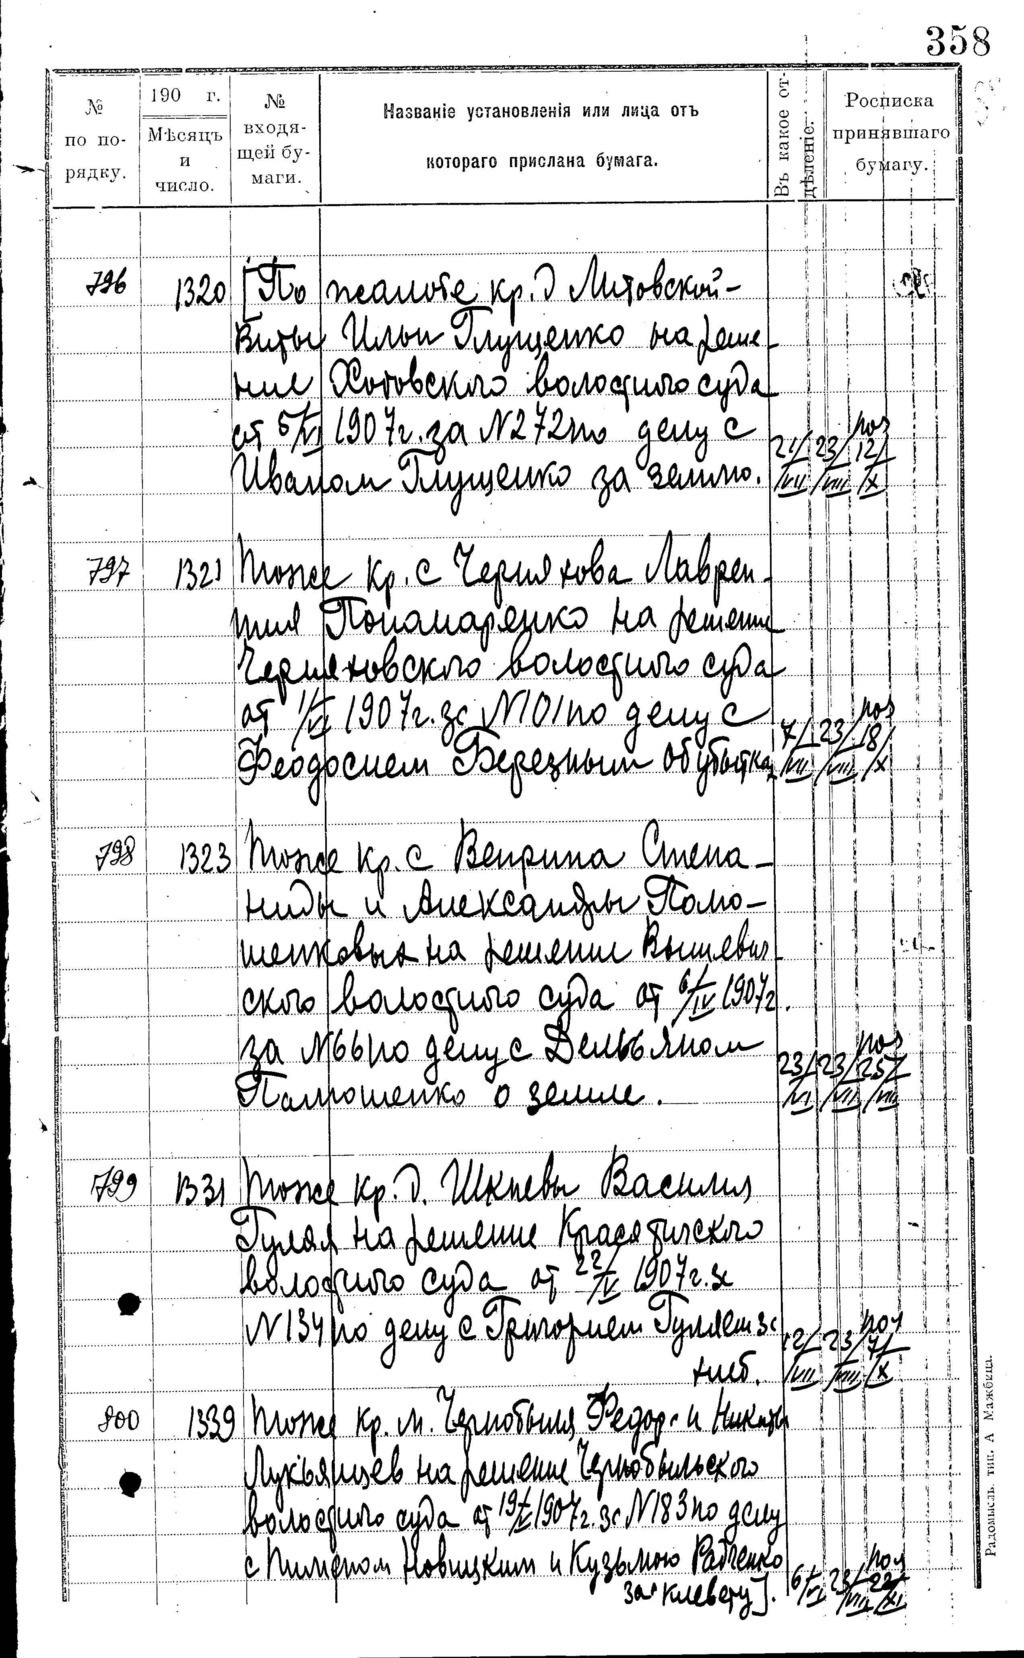 358
№ по порядку.
190 г.
Мѣсяцъ и число.
№ входящей бумаги.
Названіе установленія или лица отъ
котораго прислана бумага.
Въ какое отдѣленіе.
Росписка принявшаго бумагу.
796 1320 [По жалобе кр. д Литовской-
Виты Ильи Глущенко на реше-
ние Хотовского волостного суда
от 5/VI 1907г. за N272 по делу с
Иваном Глущенко за землю. 21/VII 23/VIII 12/X
797 1321 Тоже кр. с Черняхова Лаврен-
тия Пономаренко на решение
Черняховского волостного суда
от 1907г. за N101 по делу с
Феодосием Березным об убытках 7/VII 23/VIII 18/X
798 1323 Тоже кр. с Веприна Степа-
ниды и Александры Полю-
шенковых на решение Вышевич
ского волостного суда от 6/IV 1907г.
за N66 по делу с Демьяном
Полюшенко о земле. 23/VI 23/VII 25/VIII
799 1331 Тоже кр. д. Шкневы Василия
Гуляя на решение Красятичского
волостного суда от 22/V 1907г. за
N134 по делу с Григорием Гуляем за
хлеб. 12/VII 23/VIII 7/X
800 1339 Тоже кр. м. Чернобыля Федор. и Никиты
Лукьянцев на решение Чернобыльского
волостного суда от 1907г. за N183 по делу
с Пименом Новицким и Кузьмою Радченко
за клевету]. 23/VIII 22/XI
Радомысль. тип. А Мажбица.